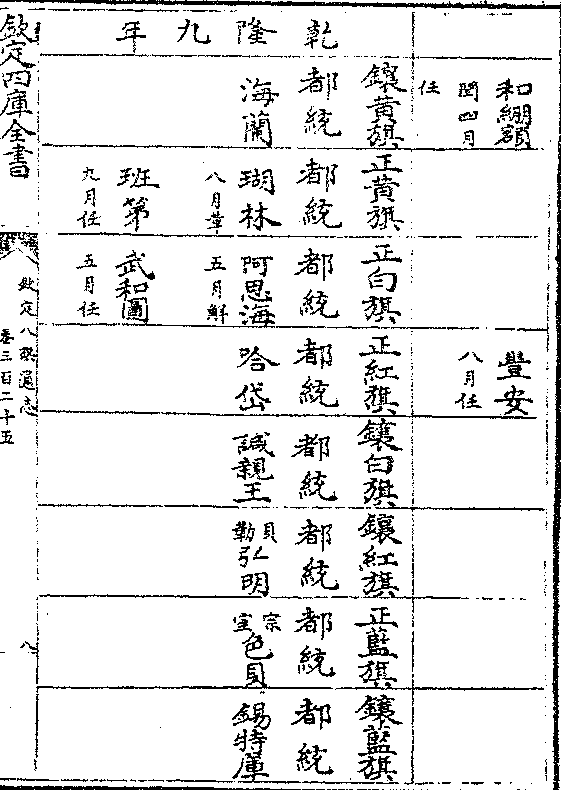 和綳額
閏四月
任
豐安
八月任
乾隆九年
鑲黃旗
都統
海蘭
正黃旗
都統
瑚林
八月革
班第
九月任
正白旗
都統
阿思海
五月解
武和圖
五月任
正紅旗
都統
哈岱
鑲白旗
都統
諴親王
鑲紅旗
都統
貝勒弘明
正藍旗
都統
宗室色貝
鑲藍旗
都統
錫特庫
欽定四庫全書
欽定八旗通志
卷三百二十五
八